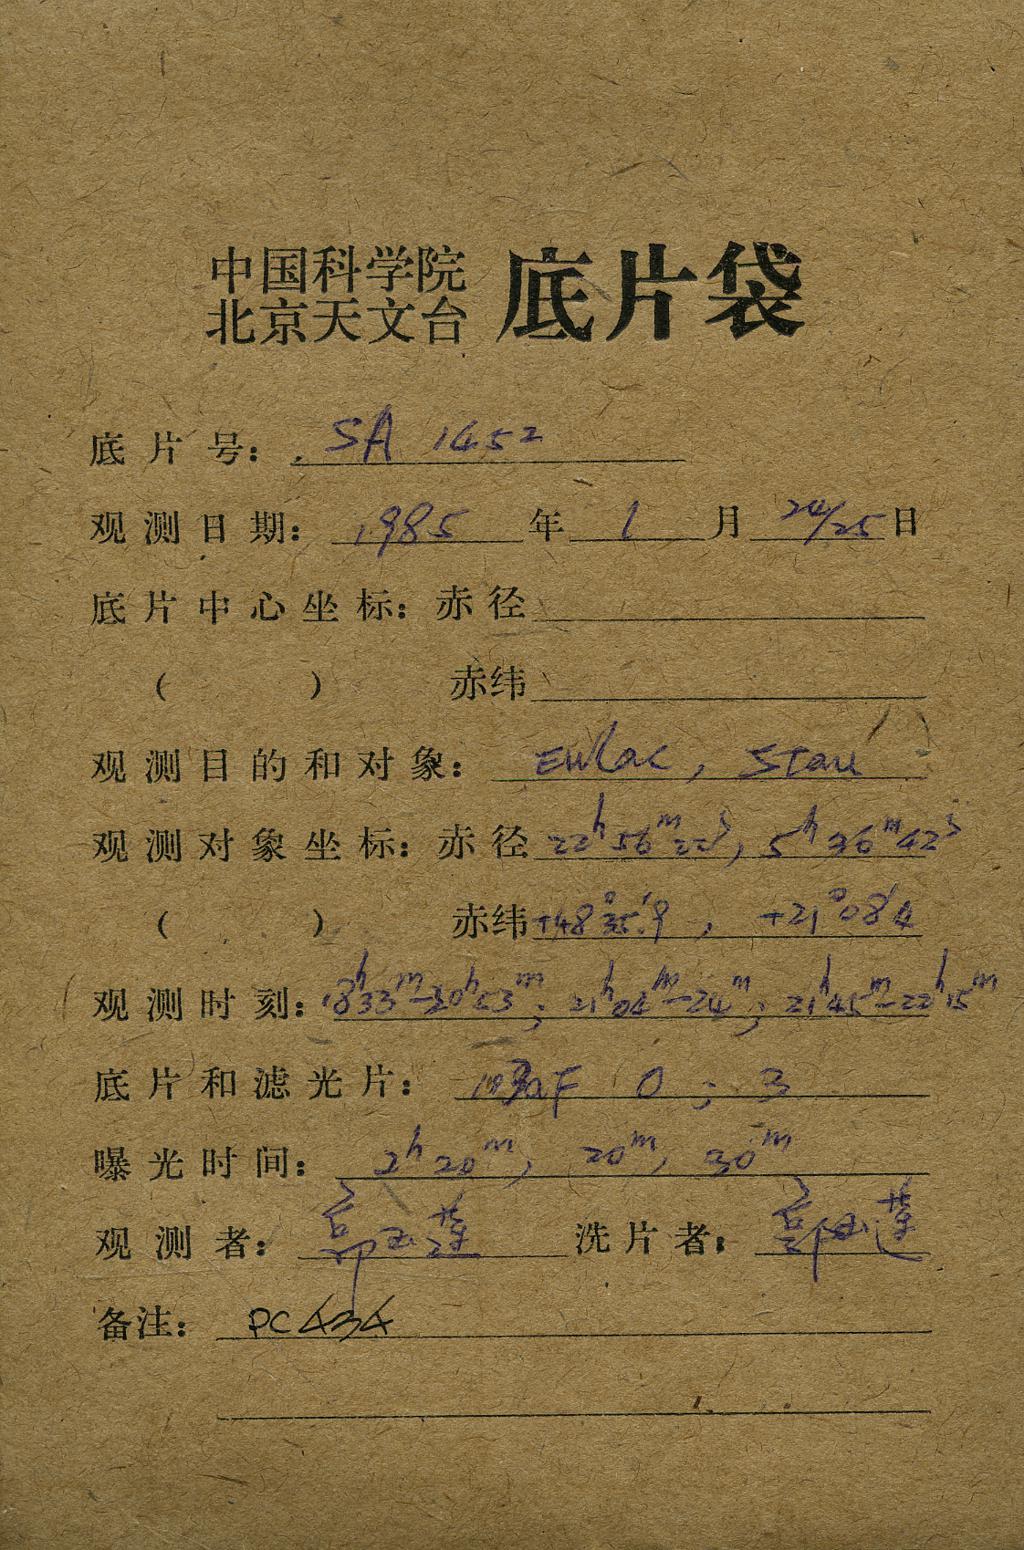 中国科学院
北京天文台 底片袋
底片号: SA 1452
观测日期: 1985 年 1 月 24/25 日
底片中心坐标: 赤径
( ) 赤纬
观测目的和对象: EWLac, 5Tau
观测对象坐标: 赤径 22ʰ56ᵐ22ˢ, 5ʰ36ᵐ42ˢ
( ) 赤纬 +48°35′.9, +21°08′4
观测时刻: 18ʰ33ᵐ-20ʰ53ᵐ; 21ʰ04ᵐ-24ᵐ; 21ʰ45ᵐ-22ʰ15ᵐ
底片和滤光片: 103aF 0; 3
曝光时间: 2ʰ20ᵐ, 20ᵐ, 30ᵐ
观测者: 郭玉莲 洗片者: 郭玉莲
备注: PC434